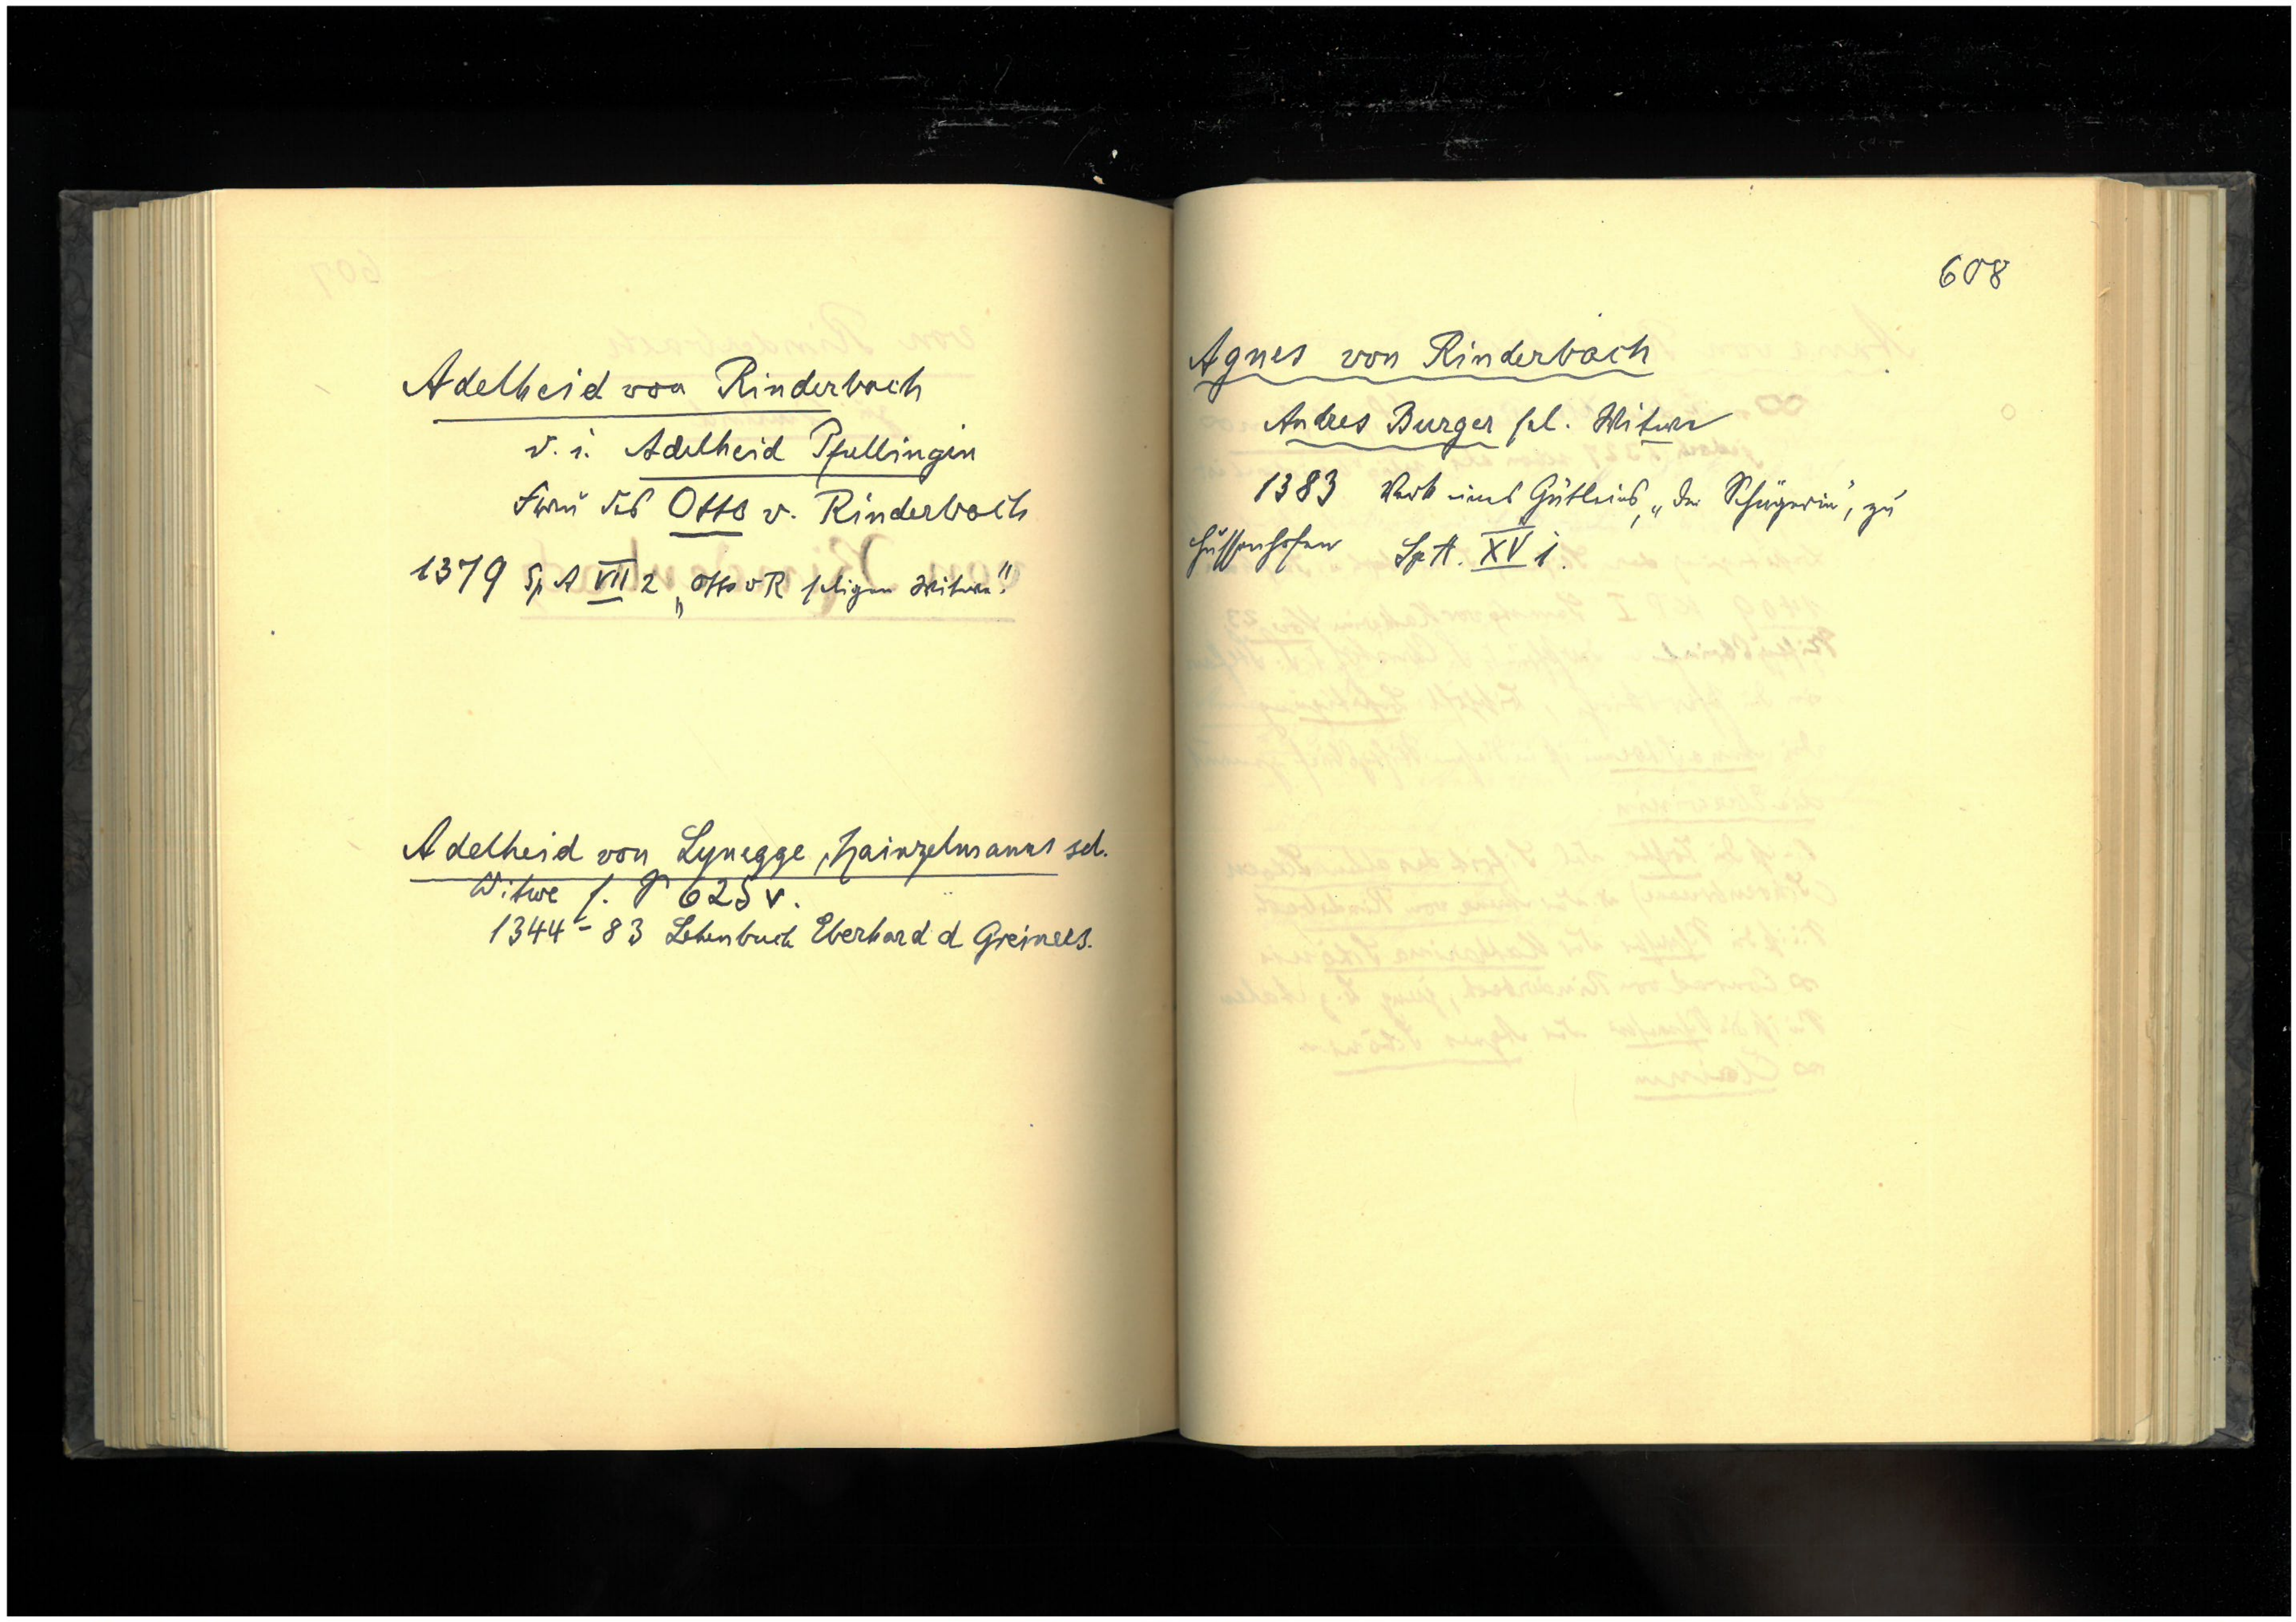 Adelheid von Rinderbach
d. i. Adelheid Pfullingin
Frau des Otto v. Rinderbach
1379 Sp A VII 2 „Otto v R seligen Witwe"
Adelheid von Lynegge, Hainzelmanns sel.
Witwe s. P 625 v.
1344-83 Lehenbuch Eberhard d Greiners.
608
Agnes von Rinderbach
Andres Burger sel. Witwe
1383 Verk eines Gütleins, „der Schügerin", zu
Hussenhofen Sp A. XV 1.